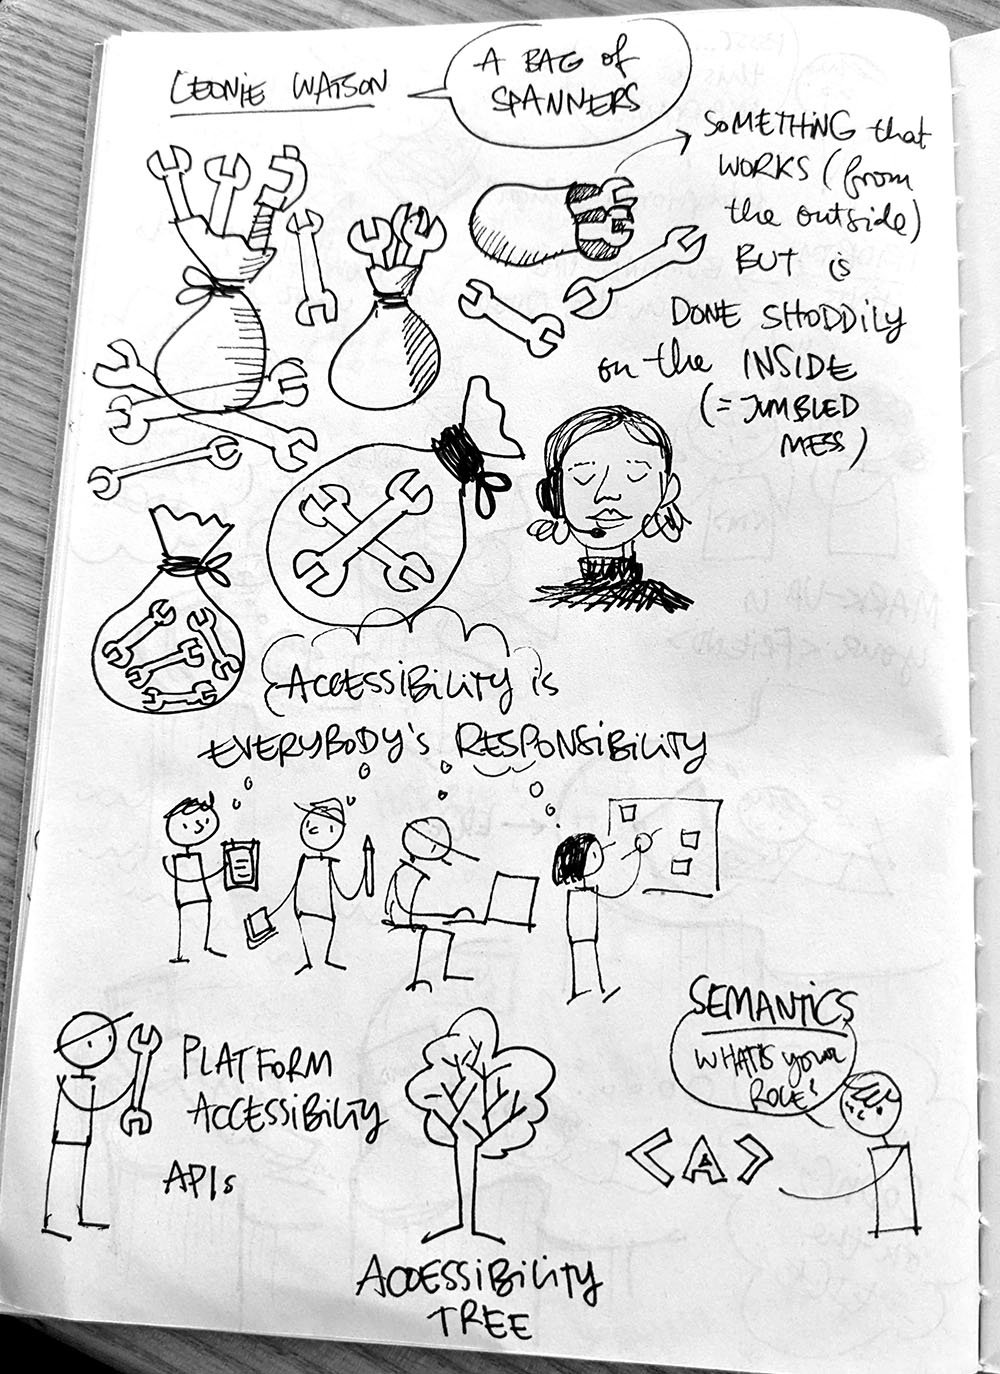 LEONIE WATSON
A BAG of
SPANNERS
SOMETHING that
WORKS (from
the outside)
BUT is
DONE SHODDILY
on the INSIDE
(= JUMBLED
MESS)
ACCESSIBILITY is
EVERYBODY'S RESPONSIBILITY
PLATFORM
ACCESSIBILITY
APIs
ACCESSIBILITY
TREE
SEMANTICS
WHAT'S your
ROLE?
<A>